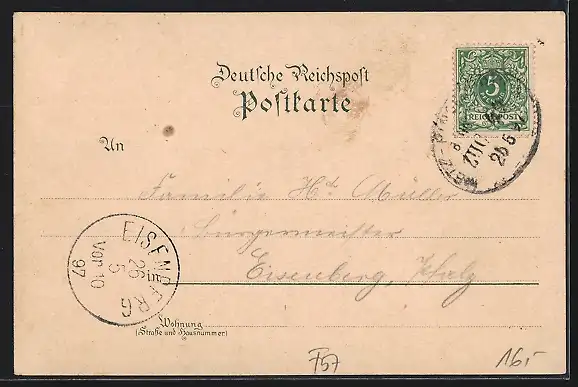 Deutsche Reichspost
Postkarte
5
REICHSPOST
METZ
ZUG
26 5
An
Familie Hch Müller
Bürgermeister
in Eisenberg, Pfalz
EISENBERG
26
5
Vor 10
97
Wohnung
(Straße und Hausnummer)
F57
16,-